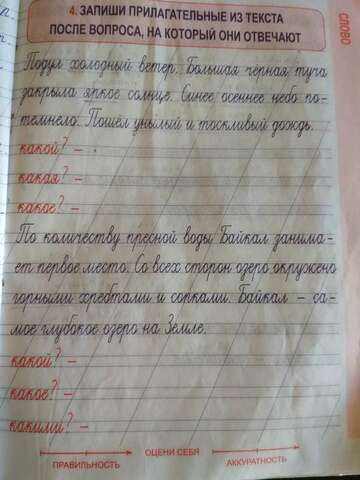 4. ЗАПИШИ ПРИЛАГАТЕЛЬНЫЕ ИЗ ТЕКСТА
ПОСЛЕ ВОПРОСА, НА КОТОРЫЙ ОНИ ОТВЕЧАЮТ
СЛОВО
Подул холодный ветер. Большая чёрная туча
закрыла яркое солнце. Синее осеннее небо по-
темнело. Пошёл унылый и тоскливый дождь.
какой? –
какая? –
какое? –
По количеству пресной воды Байкал занима-
ет первое место. Со всех сторон озеро окружено
горными хребтами и сопками. Байкал – са-
мое глубокое озеро на Земле.
какой? –
какое? –
какими? –
ОЦЕНИ СЕБЯ
ПРАВИЛЬНОСТЬ
АККУРАТНОСТЬ